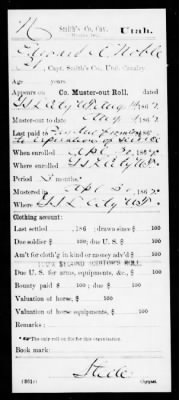 N Smith's Co., Cav. Utah.
Edward A Noble
, Capt. Smith's Co., Utah Cavalry
Age years.
Appears on Co. Muster-out Roll, dated
G S L City U.T. Aug 14, 1862.
Muster-out to date Aug 14, 1862.
Last paid to
to expiration of service
When enrolled Apl 30, 1862.
Where enrolled G S L City U.T.
Period 3 months.
Mustered in Apl 30, 1862.
Where G S L City U.T.
Clothing account:
Last settled , 186 ; drawn since $ 100
Due soldier $ 100; due U. S. $ 100
Am't for clo'g in kind or money adv'd $ 100
SECOND AUDITOR'S ROLL
Due U. S. for arms, equipments, &c., $ 100
Bounty paid $ 100; due $ 100
Valuation of horse, $ 100
Valuation of horse equipments, $ 100
Remarks:
The only roll on file for this organization.
Book mark:
Steele
(361c) Copyist.